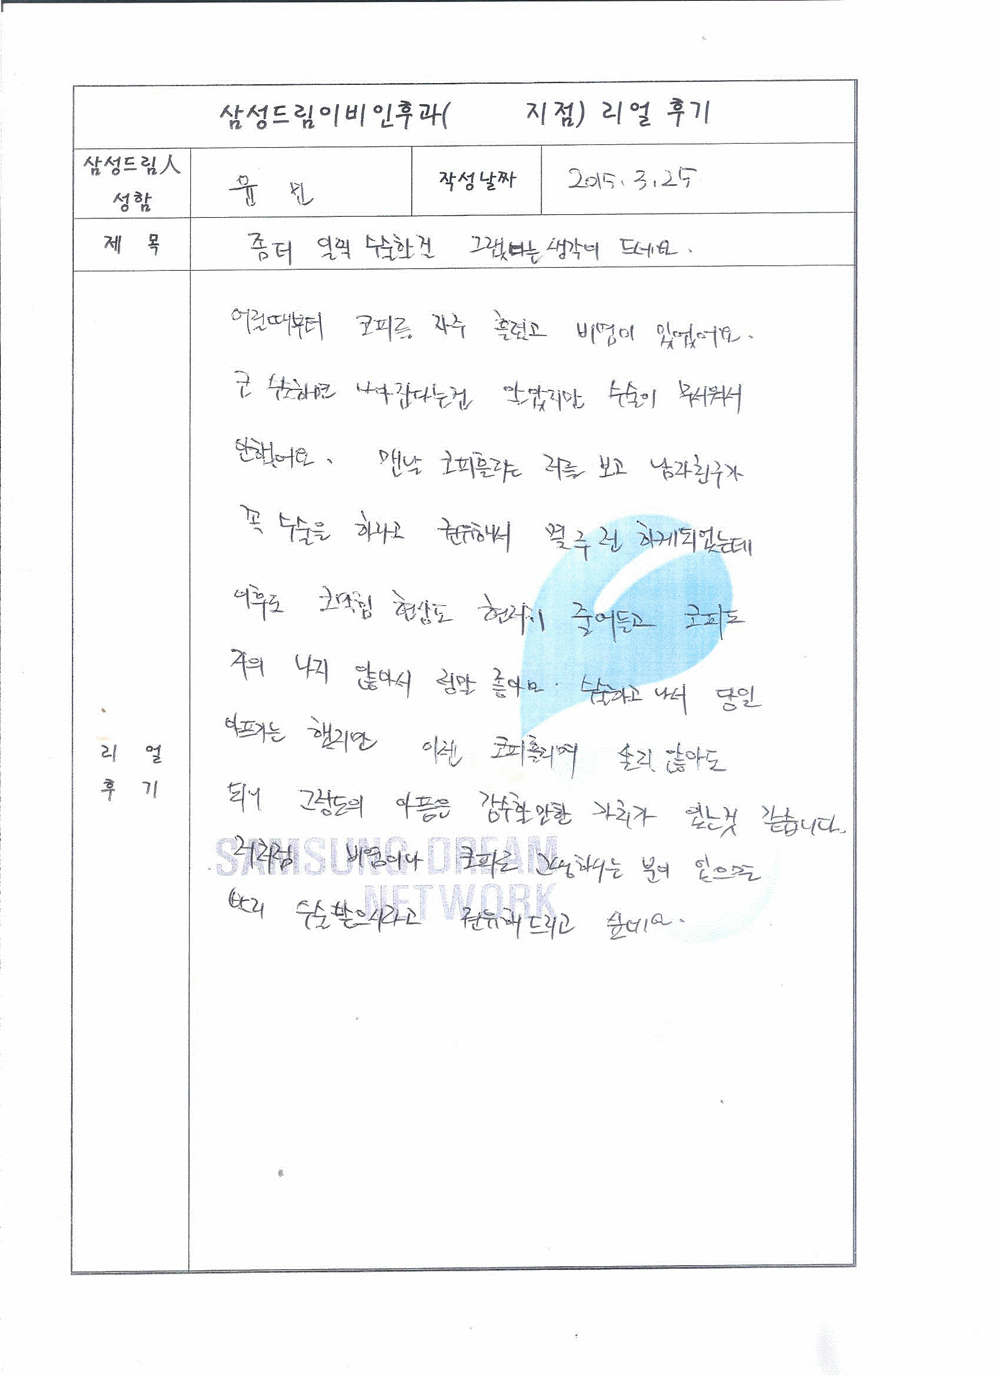 삼성드림이비인후과(      지점) 리얼 후기
삼성드림人
성함
윤 민
작성날짜
2015. 3. 25
제 목
좀더 일찍 수술할걸 그랬다는 생각이 드네요.
어릴때부터 코피를 자주 흘렸고 비염이 있었어요.
코 수술하면 나아진다는건 알았지만 수술이 무서워서
안했어요. 맨날 코피흘리는 저를 보고 남자친구가
꼭 수술을 하라고 권유해서 몇주전 하게되었는데
이후로 코막힘 현상도 현저히 줄어들고 코피도
거의 나지 않아서 정말 좋아요. 수술하고 나서 당일
아프기는 했지만 이젠 코피흘리며 살지 않아도
되니 그정도의 아픔은 감수할만한 가치가 있는것 같습니다.
저처럼 비염이나 코피로 고생하시는 분이 있으면
빨리 수술받으시라고 권유해드리고 싶네요.
리 얼
후 기
SAMSUNG DREAM
NETWORK